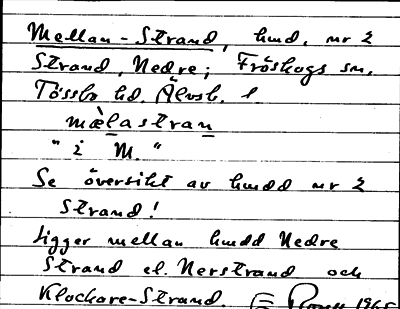 Mellan-Strand, hmd. nr 2
Strand, Nedre; Fröskogs sn,
Tössbo hd. Älvsb. l.
mæ̀lastran
" i M. "
Se översikt av hmdd nr 2
Strand!
Ligger mellan hmdd Nedre
Strand el. Nerstrand och
Klockare-Strand. 1965